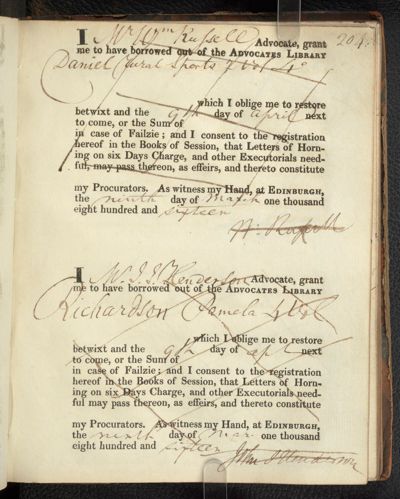 204.
I Mr Wm Russell Advocate, grant
me to have borrowed out of the ADVOCATES LIBRARY
Daniel Rural Sports 2 Vol 4o
which I oblige me to restore
betwixt and the 9th day of april next
to come, or the Sum of
in case of Failzie; and I consent to the registration
hereof in the Books of Session, that Letters of Horn-
ing on six Days Charge, and other Executorials need-
ful, may pass thereon, as effeirs, and thereto constitute
my Procurators. As witness my Hand, at EDINBURGH,
the ninth day of March one thousand
eight hundred and sixteen
W. Russell
I Mr J. J. Henderson Advocate, grant
me to have borrowed out of the ADVOCATES LIBRARY
Richardson Pamela 4 Vol
which I oblige me to restore
betwixt and the 9th day of apl next
to come, or the Sum of
in case of Failzie; and I consent to the registration
hereof in the Books of Session, that Letters of Horn-
ing on six Days Charge, and other Executorials need-
ful may pass thereon, as effeirs, and thereto constitute
my Procurators. As witness my Hand, at EDINBURGH,
the ninth day of Mar. one thousand
eight hundred and sixteen
John Henderson